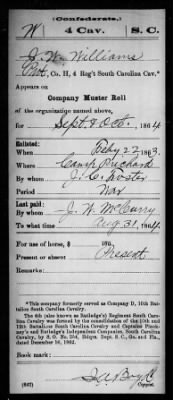 (Confederate.)
W 4 Cav. S. C.
J. Wm Williams
Pvt, Co. H, 4 Reg't South Carolina Cav.*
Appears on
Company Muster Roll
of the organization named above,
for Sept. & Oct., 1864
Enlisted:
When Feby 22, 1863
Where Camp Prichard
By whom J. C. Foster
Period War
Last paid:
By whom J. W. McCurry
To what time Aug 31, 1864
For use of horse, $
Present or absent Present
Remarks:
*This company formerly served as Company D, 10th Battalion South Carolina Cavalry.
The 4th (also known as Rutledge's) Regiment South Carolina Cavalry was formed by the consolidation of the 10th and 12th Battalions South Carolina Cavalry and Captains Pinckney's and Rutledge's Independent Companies, South Carolina Cavalry, by S. O. No. 254, Hdqrs. Dept. S. C., Ga. and Fla., dated December 16, 1862.
Book mark:
(642)
Copyist.